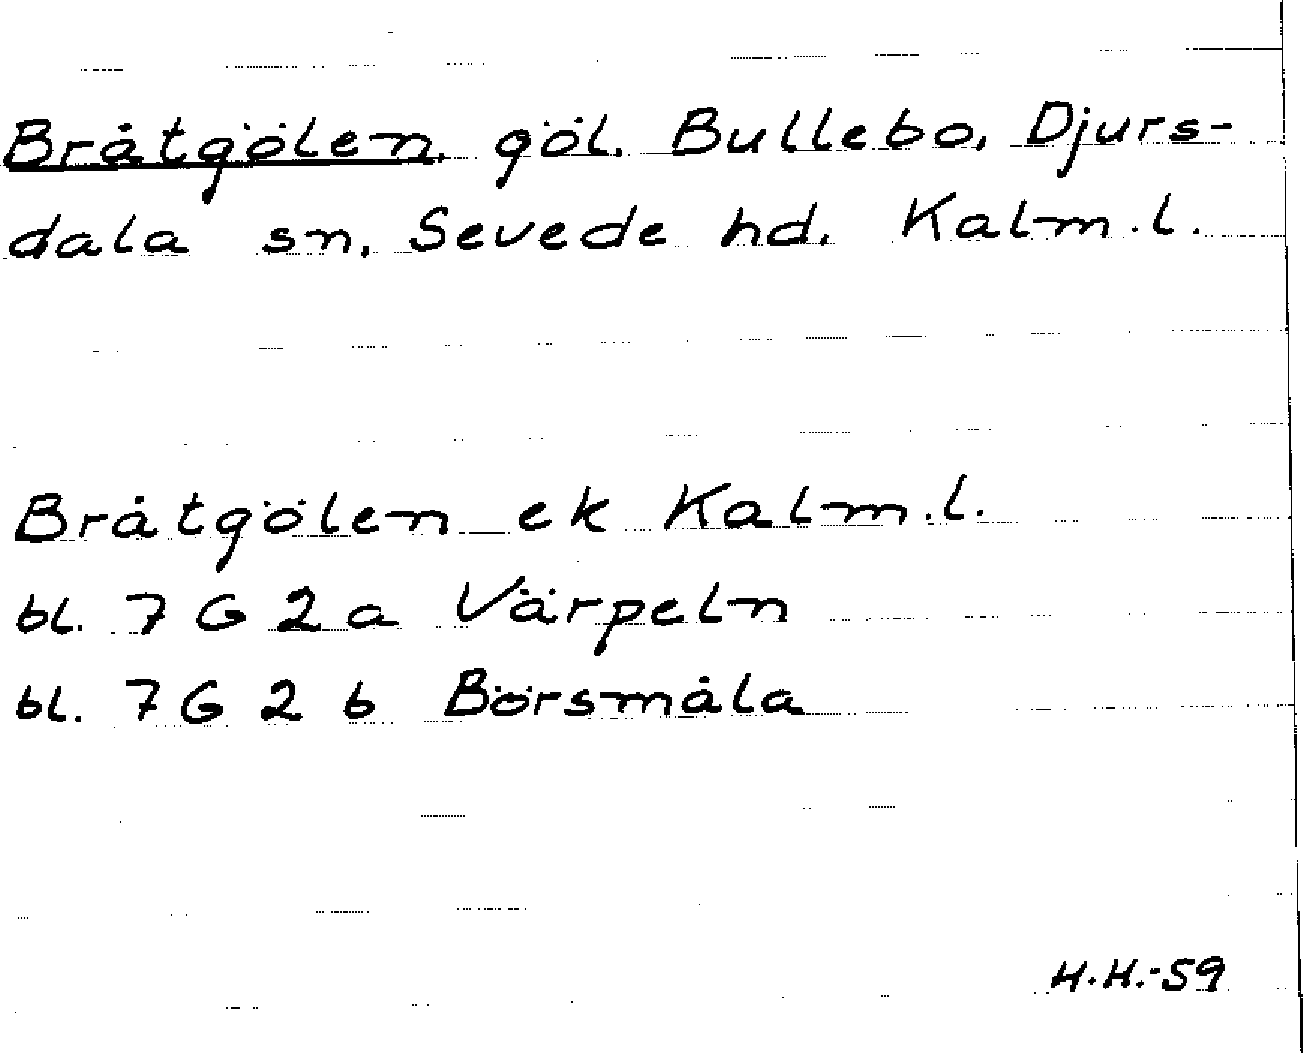 Bråtgölen, göl. Bullebo, Djurs-
dala sn, Sevede hd. Kalm.l.
Bråtgölen ek Kalm.l.
bl. 7 G 2 a Värpeln
bl. 7 G 2 b Börsmåla
H.H.-59